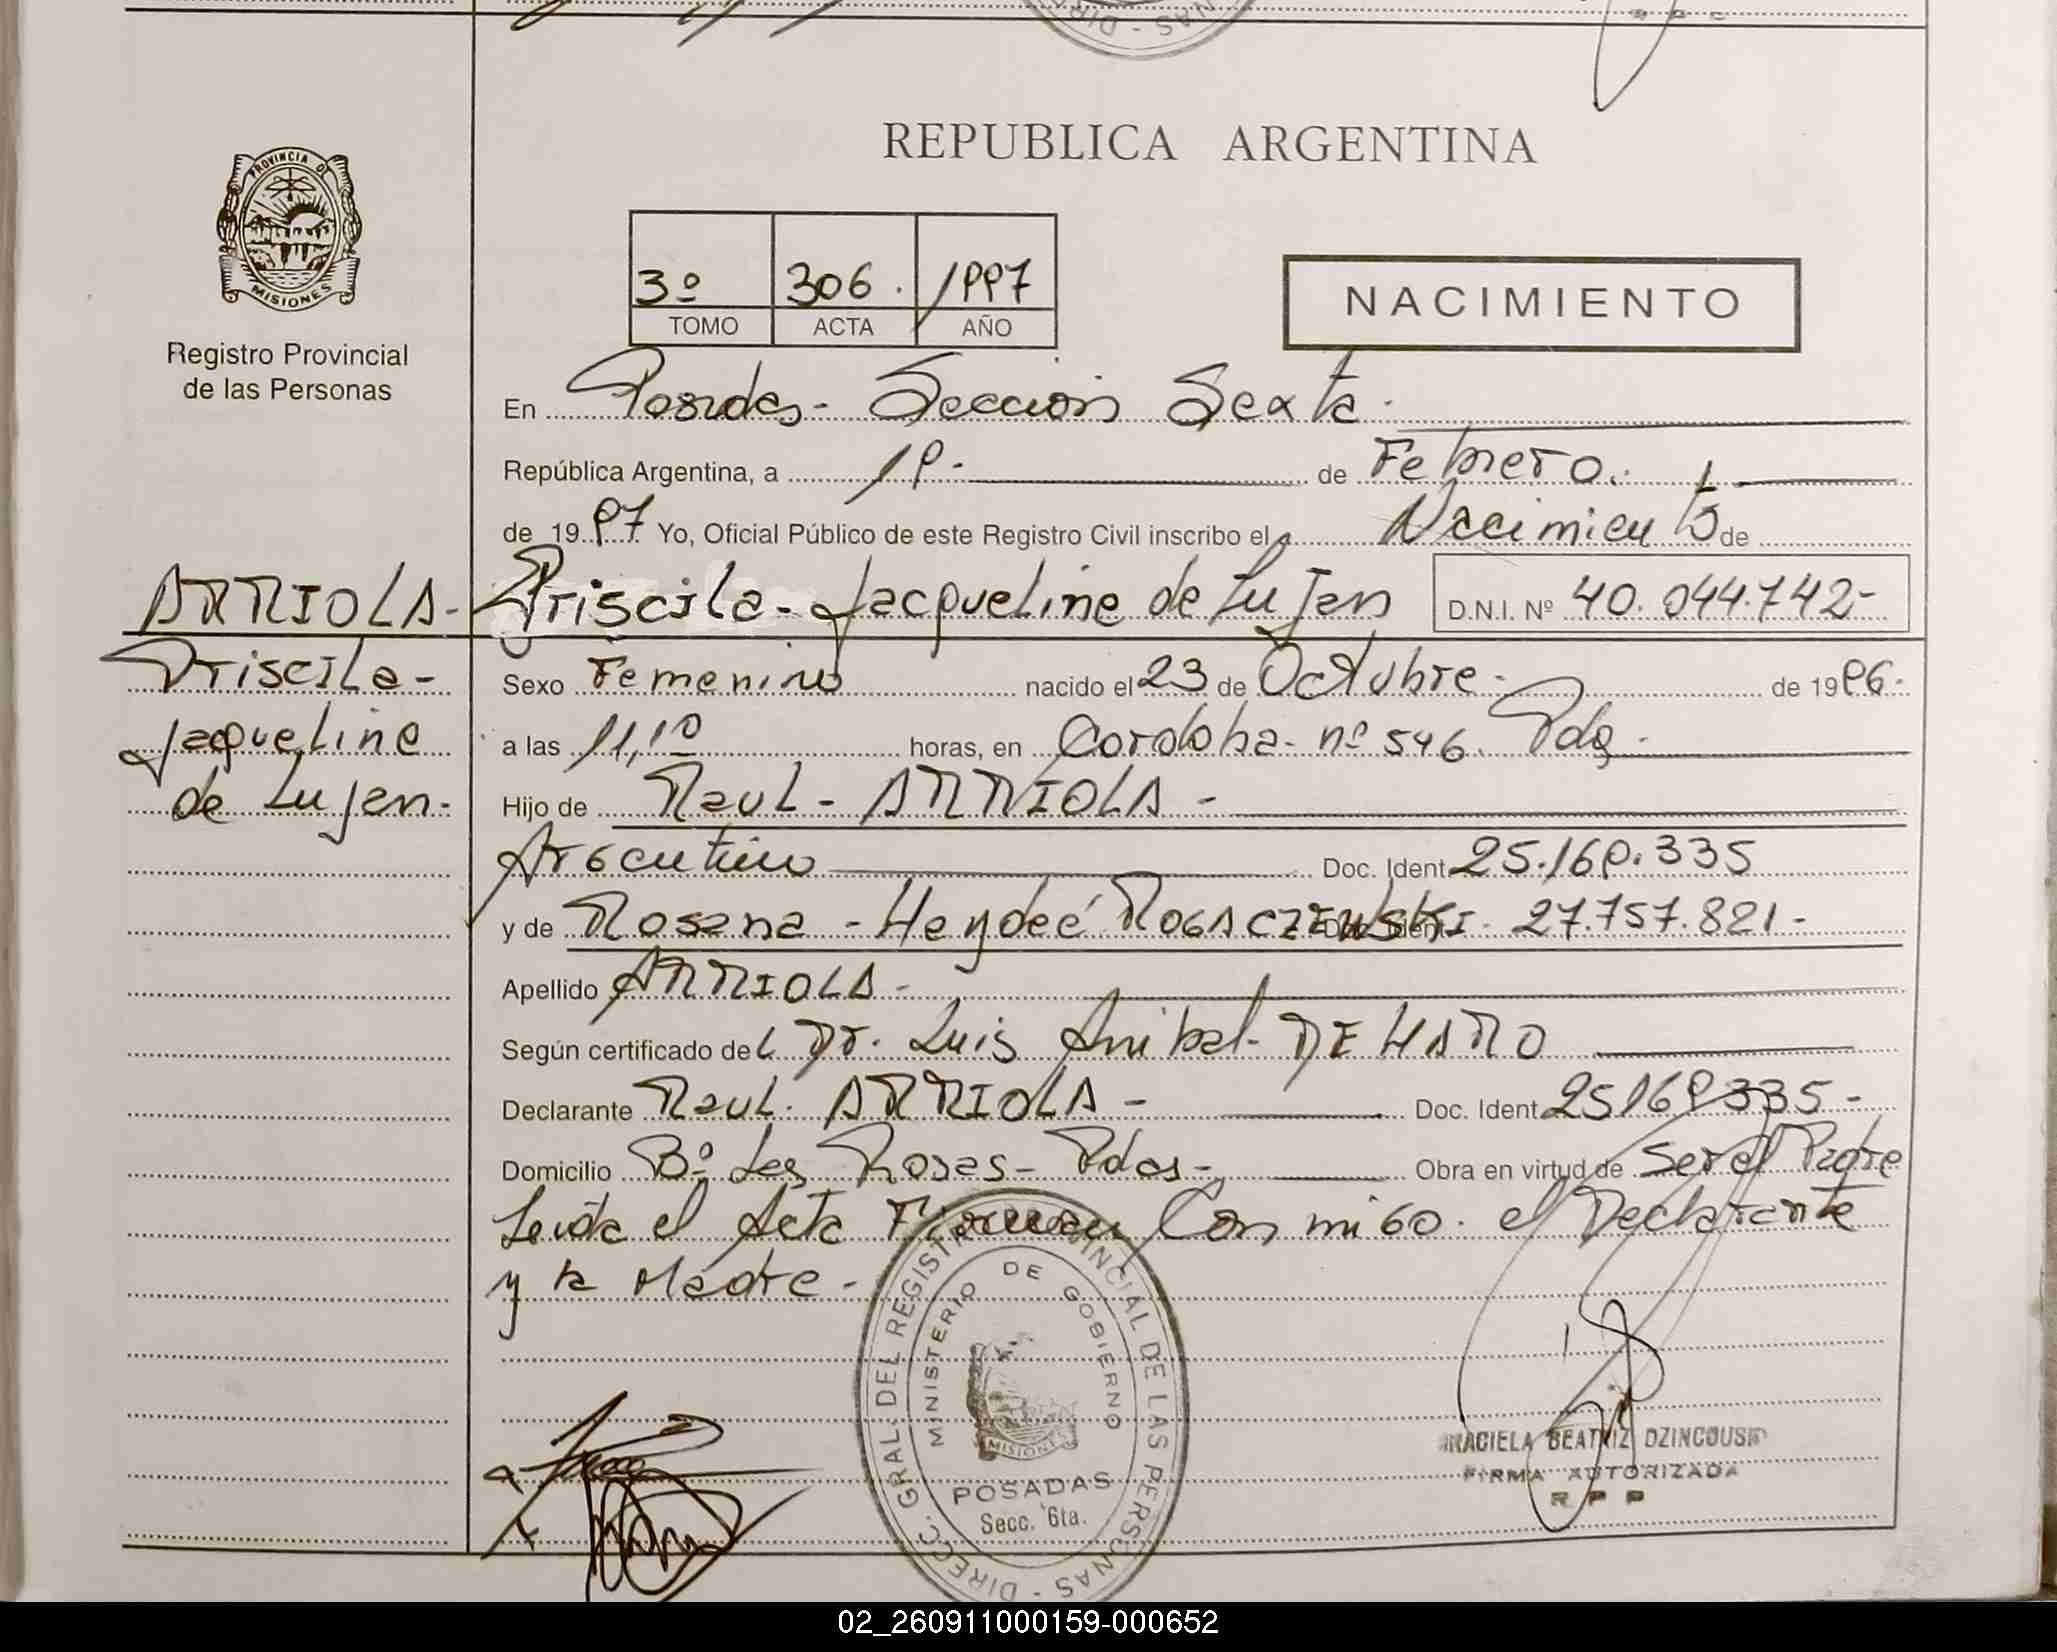 REPUBLICA ARGENTINA
PROVINCIA D
MISIONES
Registro Provincial
de las Personas
3º 306. 1997
TOMO ACTA AÑO
NACIMIENTO
En Posadas- Sección Sexta.
República Argentina, a 19.- de Febrero.-
de 1997 Yo, Oficial Público de este Registro Civil inscribo el Nacimiento de
ARRIOLA- Priscila- Jacqueline de Lujan D.N.I. Nº 40.044.742-
Priscila-
Jacqueline
de Lujan-
Sexo Femenino nacido el 23 de Octubre- de 1996-
a las 11,10 horas, en Cordoba- nº 546. Pdas-
Hijo de Raul- ARRIOLA-
Argentino Doc. Ident. 25.169.335
y de Rosana - Haydeé ROGACZEWSKI- Doc. Ident. 27.757.821-
Apellido ARRIOLA-
Según certificado del Dr. Luis Anibal- DE HARO
Declarante Raul- ARRIOLA- Doc. Ident 25169335-
Domicilio Bº Las Rosas- Pdas- Obra en virtud de ser el Padre
Leida el Acta Firman Con migo- el Declarante
y la Madre-
DIRECC. GRAL. DEL REGISTRO PROVINCIAL DE LAS PERSONAS
MINISTERIO DE GOBIERNO
MISIONES
POSADAS
Secc. 6ta.
GRACIELA BEATRIZ DZINCOUSKI
FIRMA AUTORIZADA
R P P
02_260911000159-000652